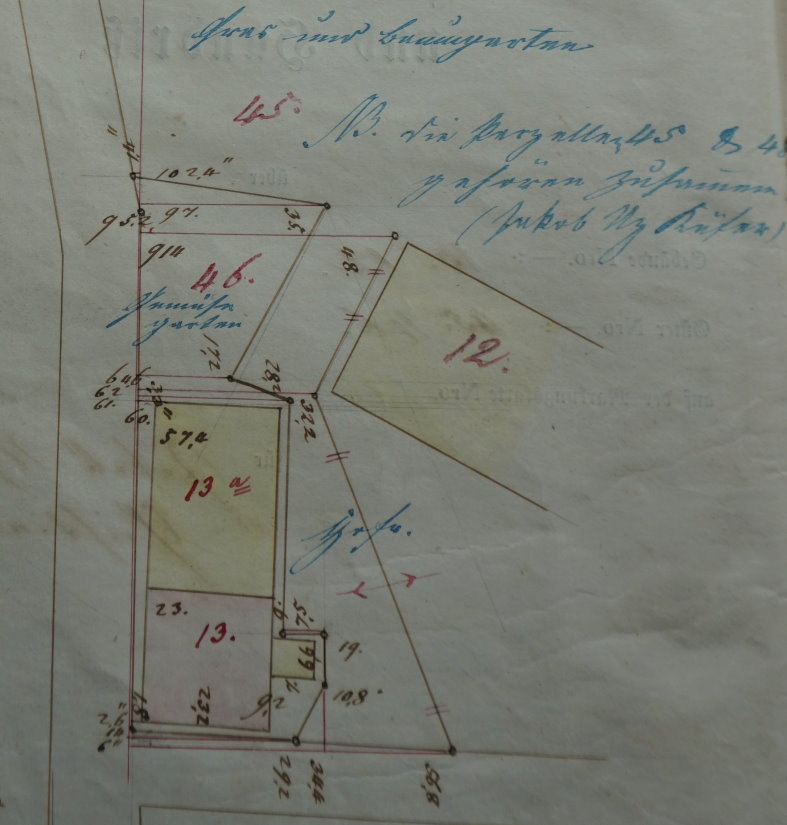 Gras und Baumgarten
45.
NB. Die Parzellen 45 & 46
gehören zusammen
(Jakob Ug Küfer)
4"
102,4"
95,2
97.
35,
914
46.
48.
Gemüse
garten
12.
17,2
28,2
64,6
62
61.
60.
32,2
57,4
13 a
Hofr.
23.
13.
6.
5,1
19.
66
10,8"
23,2
9,2
29,2
34,4
56,8